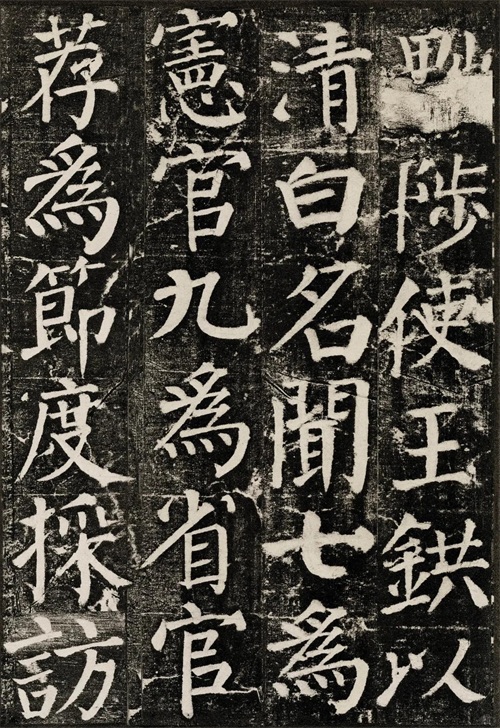 陟使王鉷以
清白名聞七爲
憲官九爲省官
荐爲節度採訪